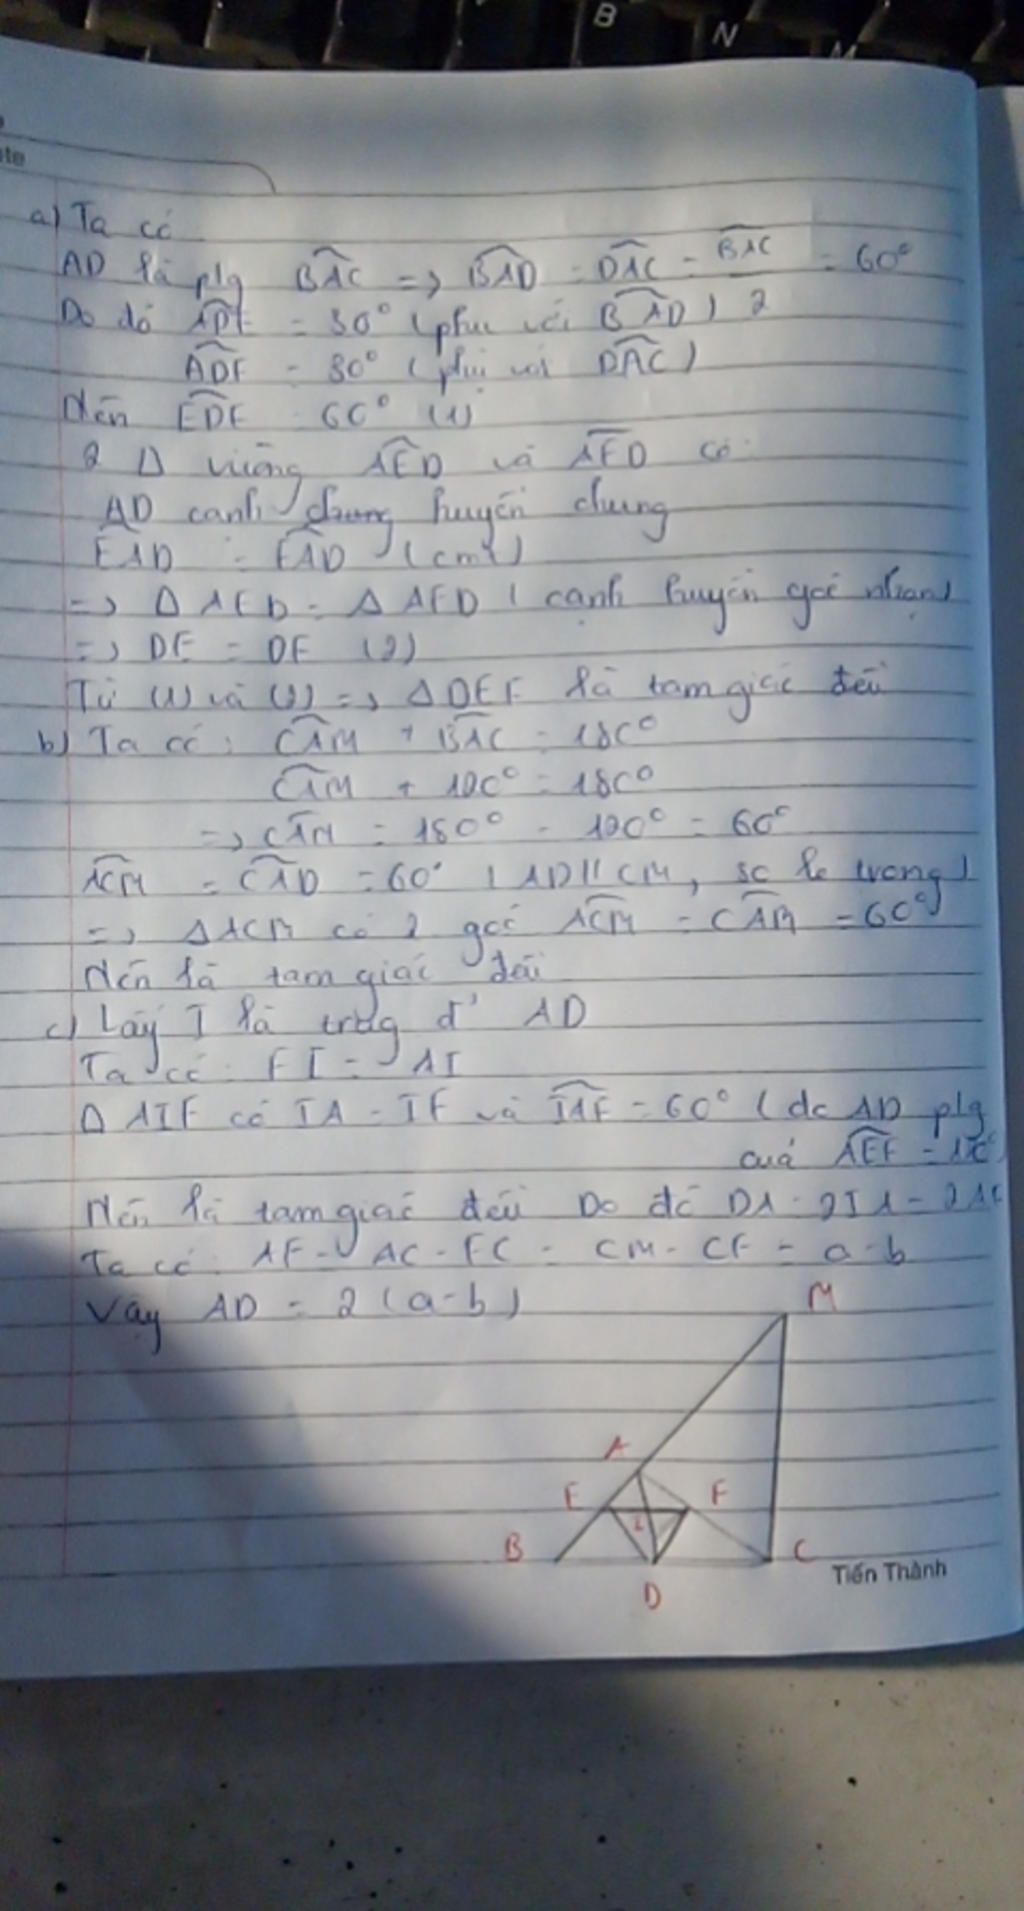 B
N
M
te
a) Ta có
AD là plg BAC => BAD = DAC = BAC/2 = 60°
Do đó ADE = 30° (phụ với BAD)
ADF = 30° (phụ với DAC)
Nên EDF = 60° (1)
2 Δ vuông AED và AFD có:
AD cạnh huyền chung
EAD = FAD (cmt)
=> Δ AED = Δ AFD (cạnh huyền góc nhọn)
=> DE = DF (2)
Từ (1) và (2) => ΔDEF là tam giác đều
b) Ta có: CAM + BAC = 180°
CAM + 120° = 180°
=> CAM = 180° - 120° = 60°
ACM = CAD = 60° (AD // CM, so le trong)
=> ΔACM có 2 góc ACM = CAM = 60°
Nên là tam giác đều
c) Lấy I là trung đ' AD
Ta có: FI = AI
Δ AIF có IA = IF và IAF = 60° (do AD plg
của AEF =
Nên là tam giác đều Do đó DA = 2IA = 2AF
Ta có: AF = AC - FC = CM - CF = a - b
Vậy AD = 2(a-b)
M
A
E F
I
B C
D
Tiến Thành